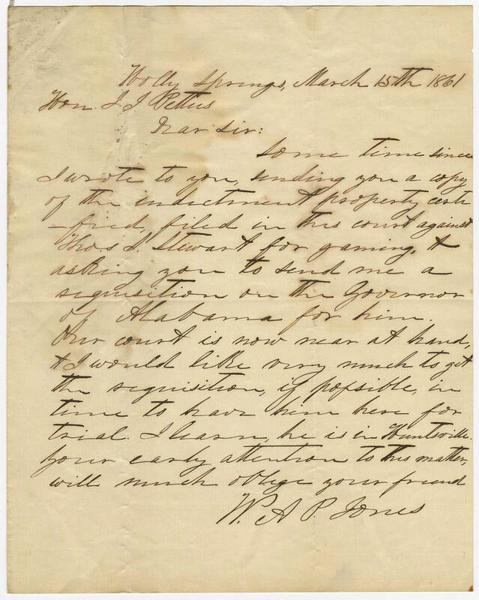 Holly Springs, March 15th 1861
Hon. J J Pettus
Dear Sir:
Some time since
I wrote to you, sending you a copy
of the indictment property certi
-fied, filed in this court against
Thos S. Stewart for gaming, &
asking you to send me a
requisition on the Governor
of Alabama for him.
Our court is now near at hand,
& I would like very much to get
the requisition, if possible, in
time to have him here for
trial. I learn, he is in Huntsville.
Your early attention to this matter,
will much oblige your friend
W. A. P. Jones